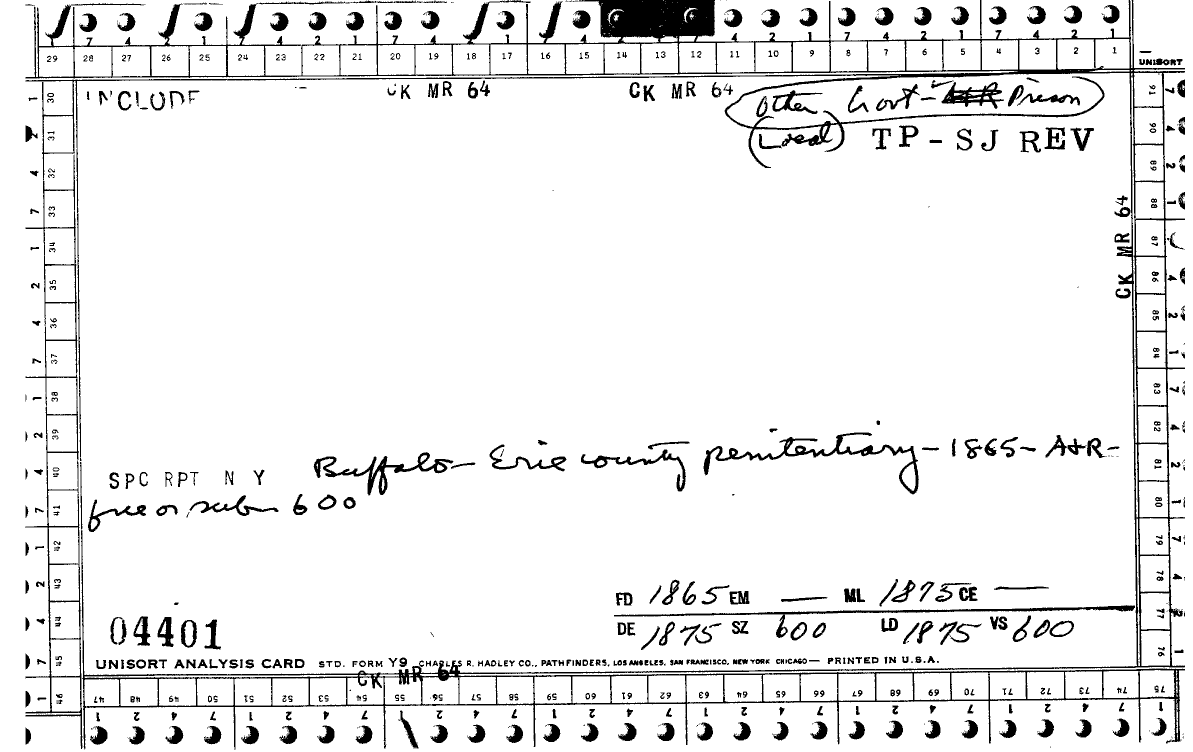 29 28 27 26 25 24 23 22 21 20 19 18 17 16 15 14 13 12 11 10 9 8 7 6 5 4 3 2 1
UNISORT
INCLUDE CK MR 64 CK MR 64
Other Govt - A&R Prison
(Local) TP - SJ REV
CK MR 64
SPC RPT N Y Buffalo - Erie county penitentiary - 1865 - A&R -
free or subn 600
FD 1865 EM — ML 1875 CE —
DE 1875 SZ 600 LD 1875 VS 600
04401
UNISORT ANALYSIS CARD STD. FORM Y9 CHARLES R. HADLEY CO., PATHFINDERS, LOS ANGELES, SAN FRANCISCO, NEW YORK CHICAGO — PRINTED IN U.S.A.
CK MR 64
30 31 32 33 34 35 36 37 38 39 40 41 42 43 44 45 46
47 48 49 50 51 52 53 54 55 56 57 58 59 60 61 62 63 64 65 66 67 68 69 70 71 72 73 74 75
91 90 89 88 87 86 85 84 83 82 81 80 79 78 77 76